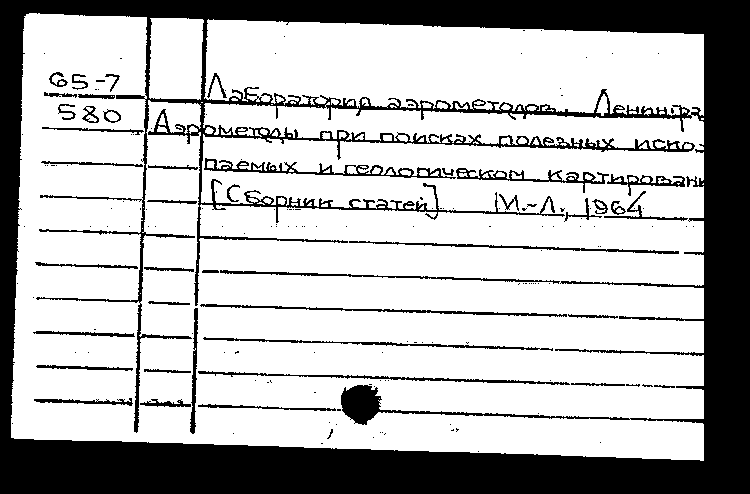 65-7 Лаборатория аэрометодов. Ленингра
580 Аэрометоды при поисках полезных иско-
паемых и геологическом картировани
[Сборник статей] М.-Л., 1964